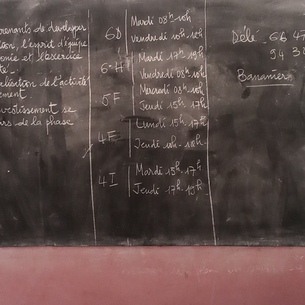 prenants de développer
tion, l'esprit d'équipe
omie et l'exercice
té.
élisation de l'activité
ement
vestissement se
rs de la phase
6D
Mardi 08h-10h
Vendredi 10h-10h
6e H
Mardi 17h-19h
Vendredi 08h-10h
5F
Mercredi 08h-10h
Jeudi 15h-17h
4F
Lundi 15h-17h
Jeudi 10h-12h
4I
Mardi 15h-17h
Jeudi 17h-19h
Délé. 66 47
94 38
Bananier